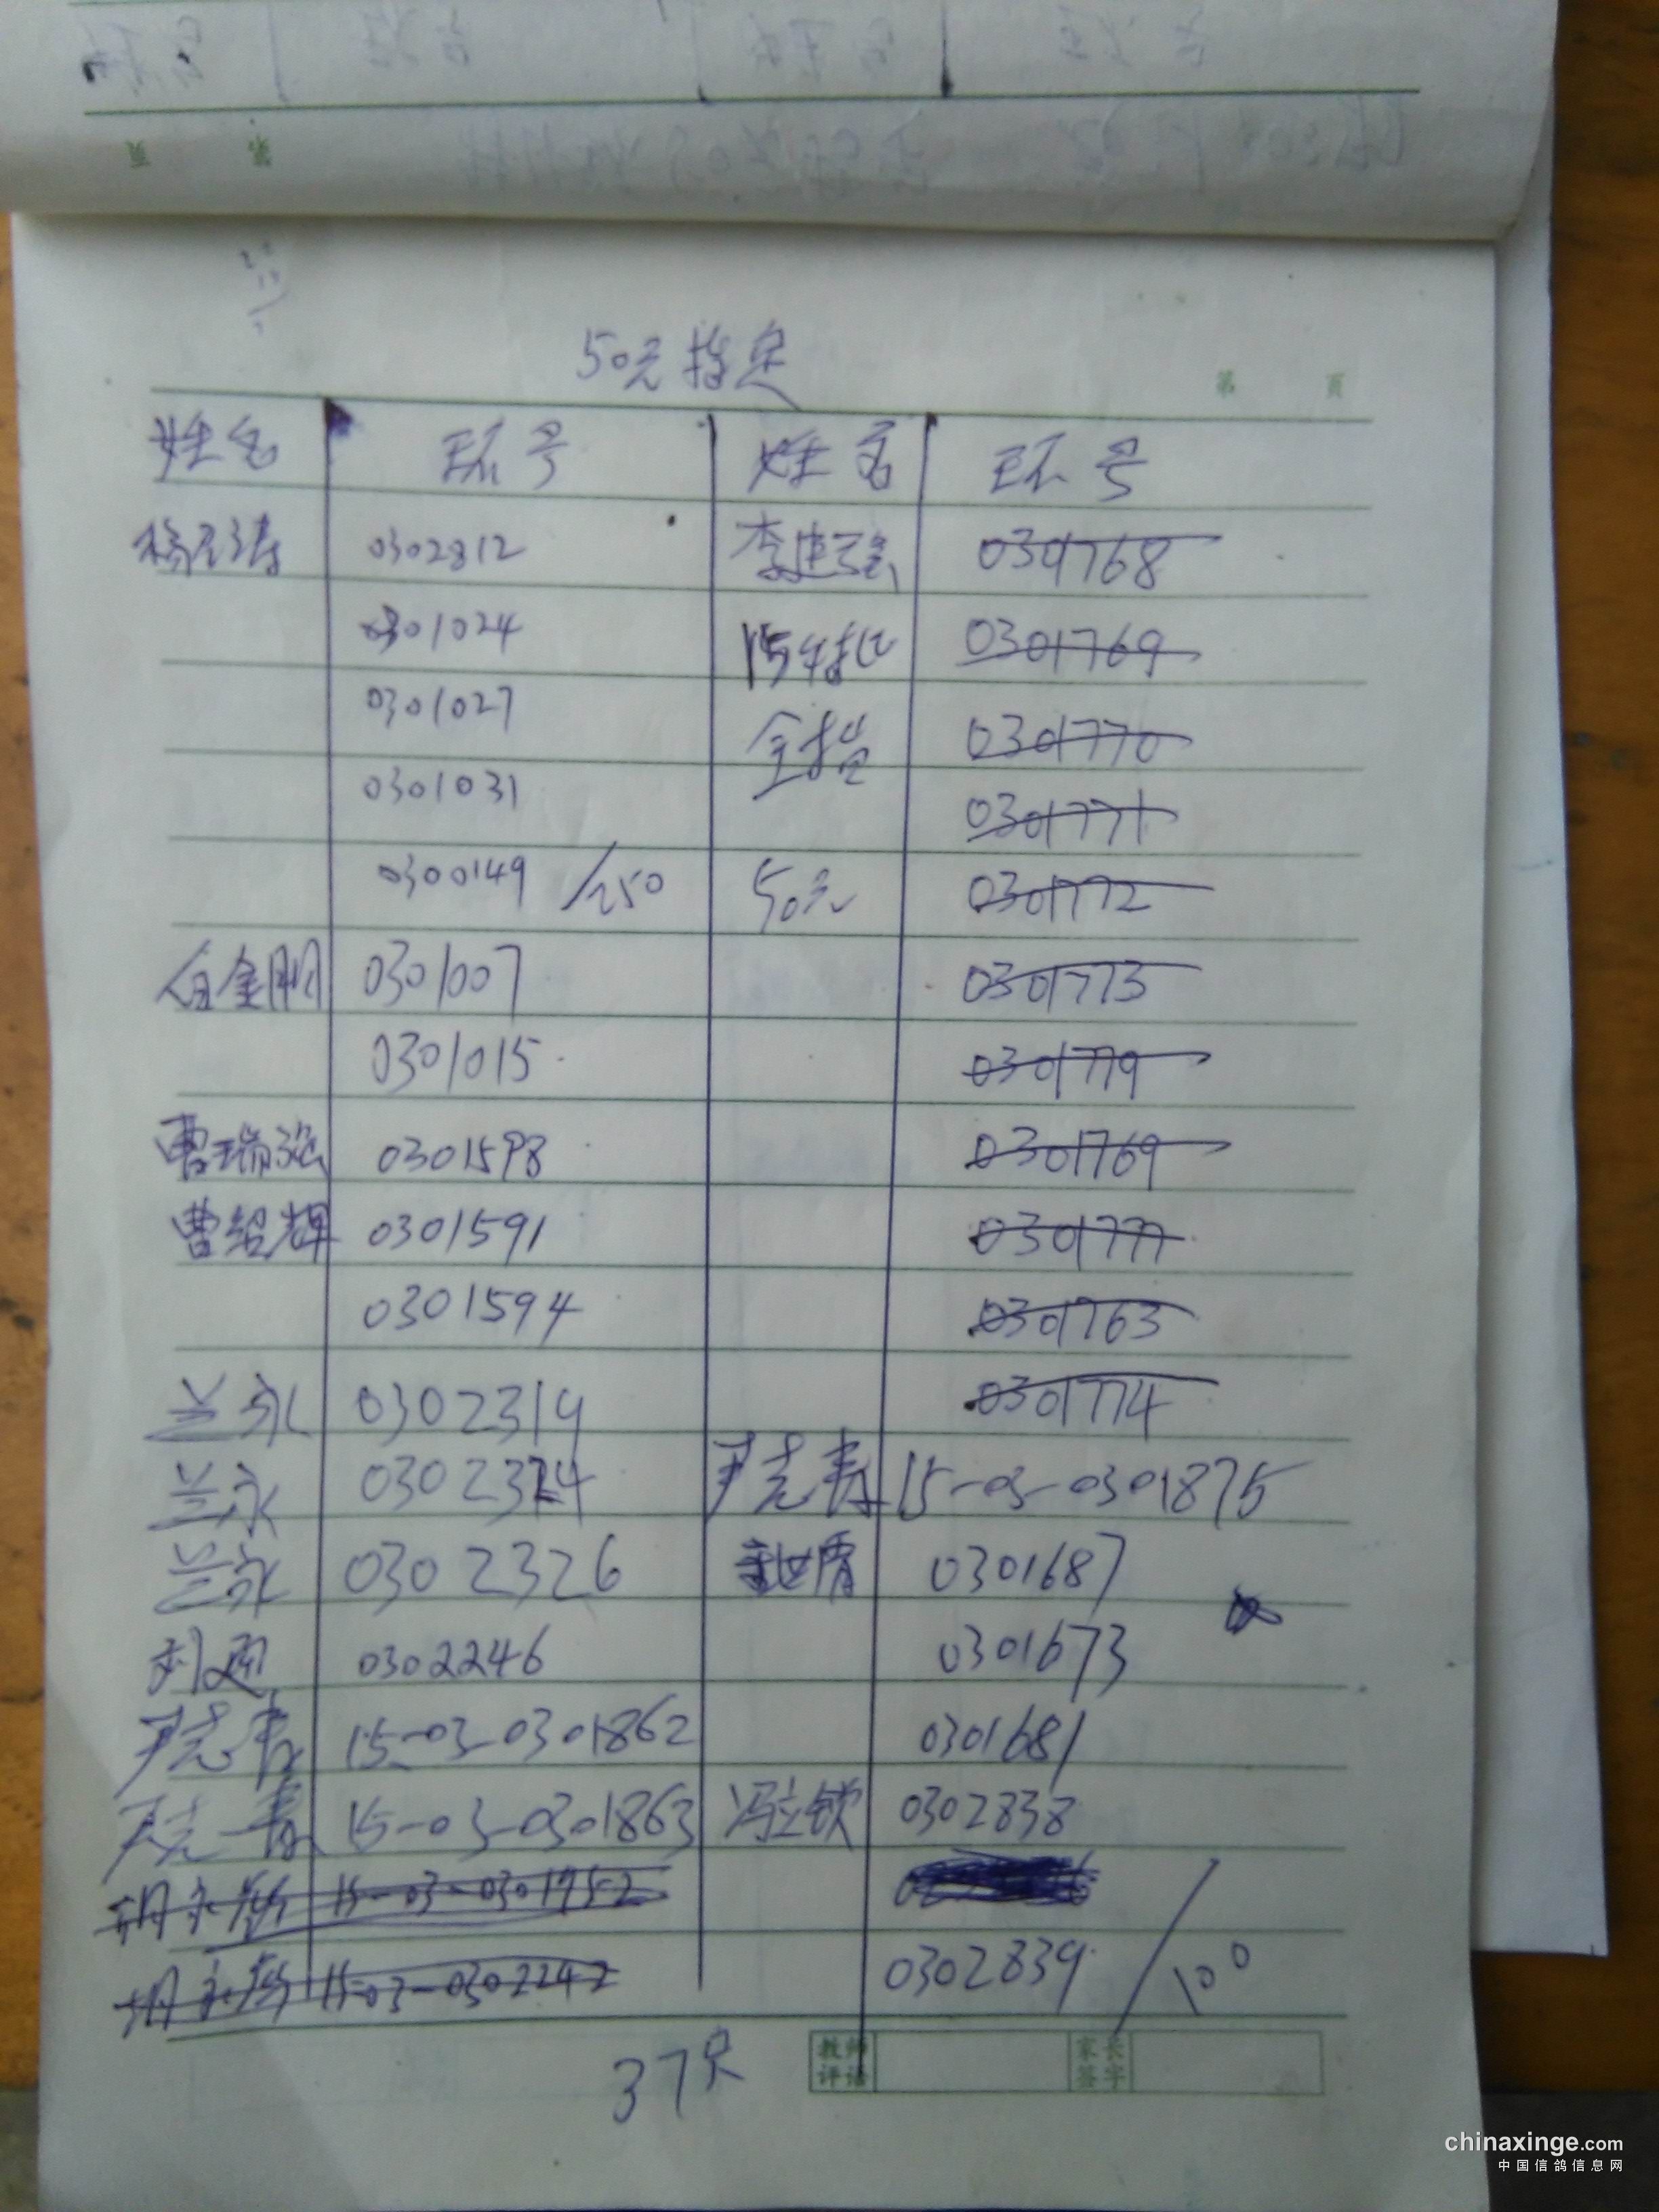 50元指定
第 页
姓名 环号 姓名 环号
0302812 李建 0301768
0301024 0301769
0301027 全指 0301770
0301031 0301771
0300149 /250 50元 0301772
白金刚 0301007 0301773
0301015 0301779
曹瑞强 0301598 0301769
曹绍辉 0301591 0301777
0301594 0301763
兰永 0302319 0301774
兰永 0302324 尹志春 15-03-0301875
兰永 0302326 0301687
刘 0302246 0301673
尹志春 15-03-0301862 0301681
尹志春 15-03-0301863 冯立钦 0302838
胡永 15-03-0301952
胡永 15-03-0302242 0302839 /100
37只
教师评语 家长签字
chinaxinge.com
中国信鸽信息网